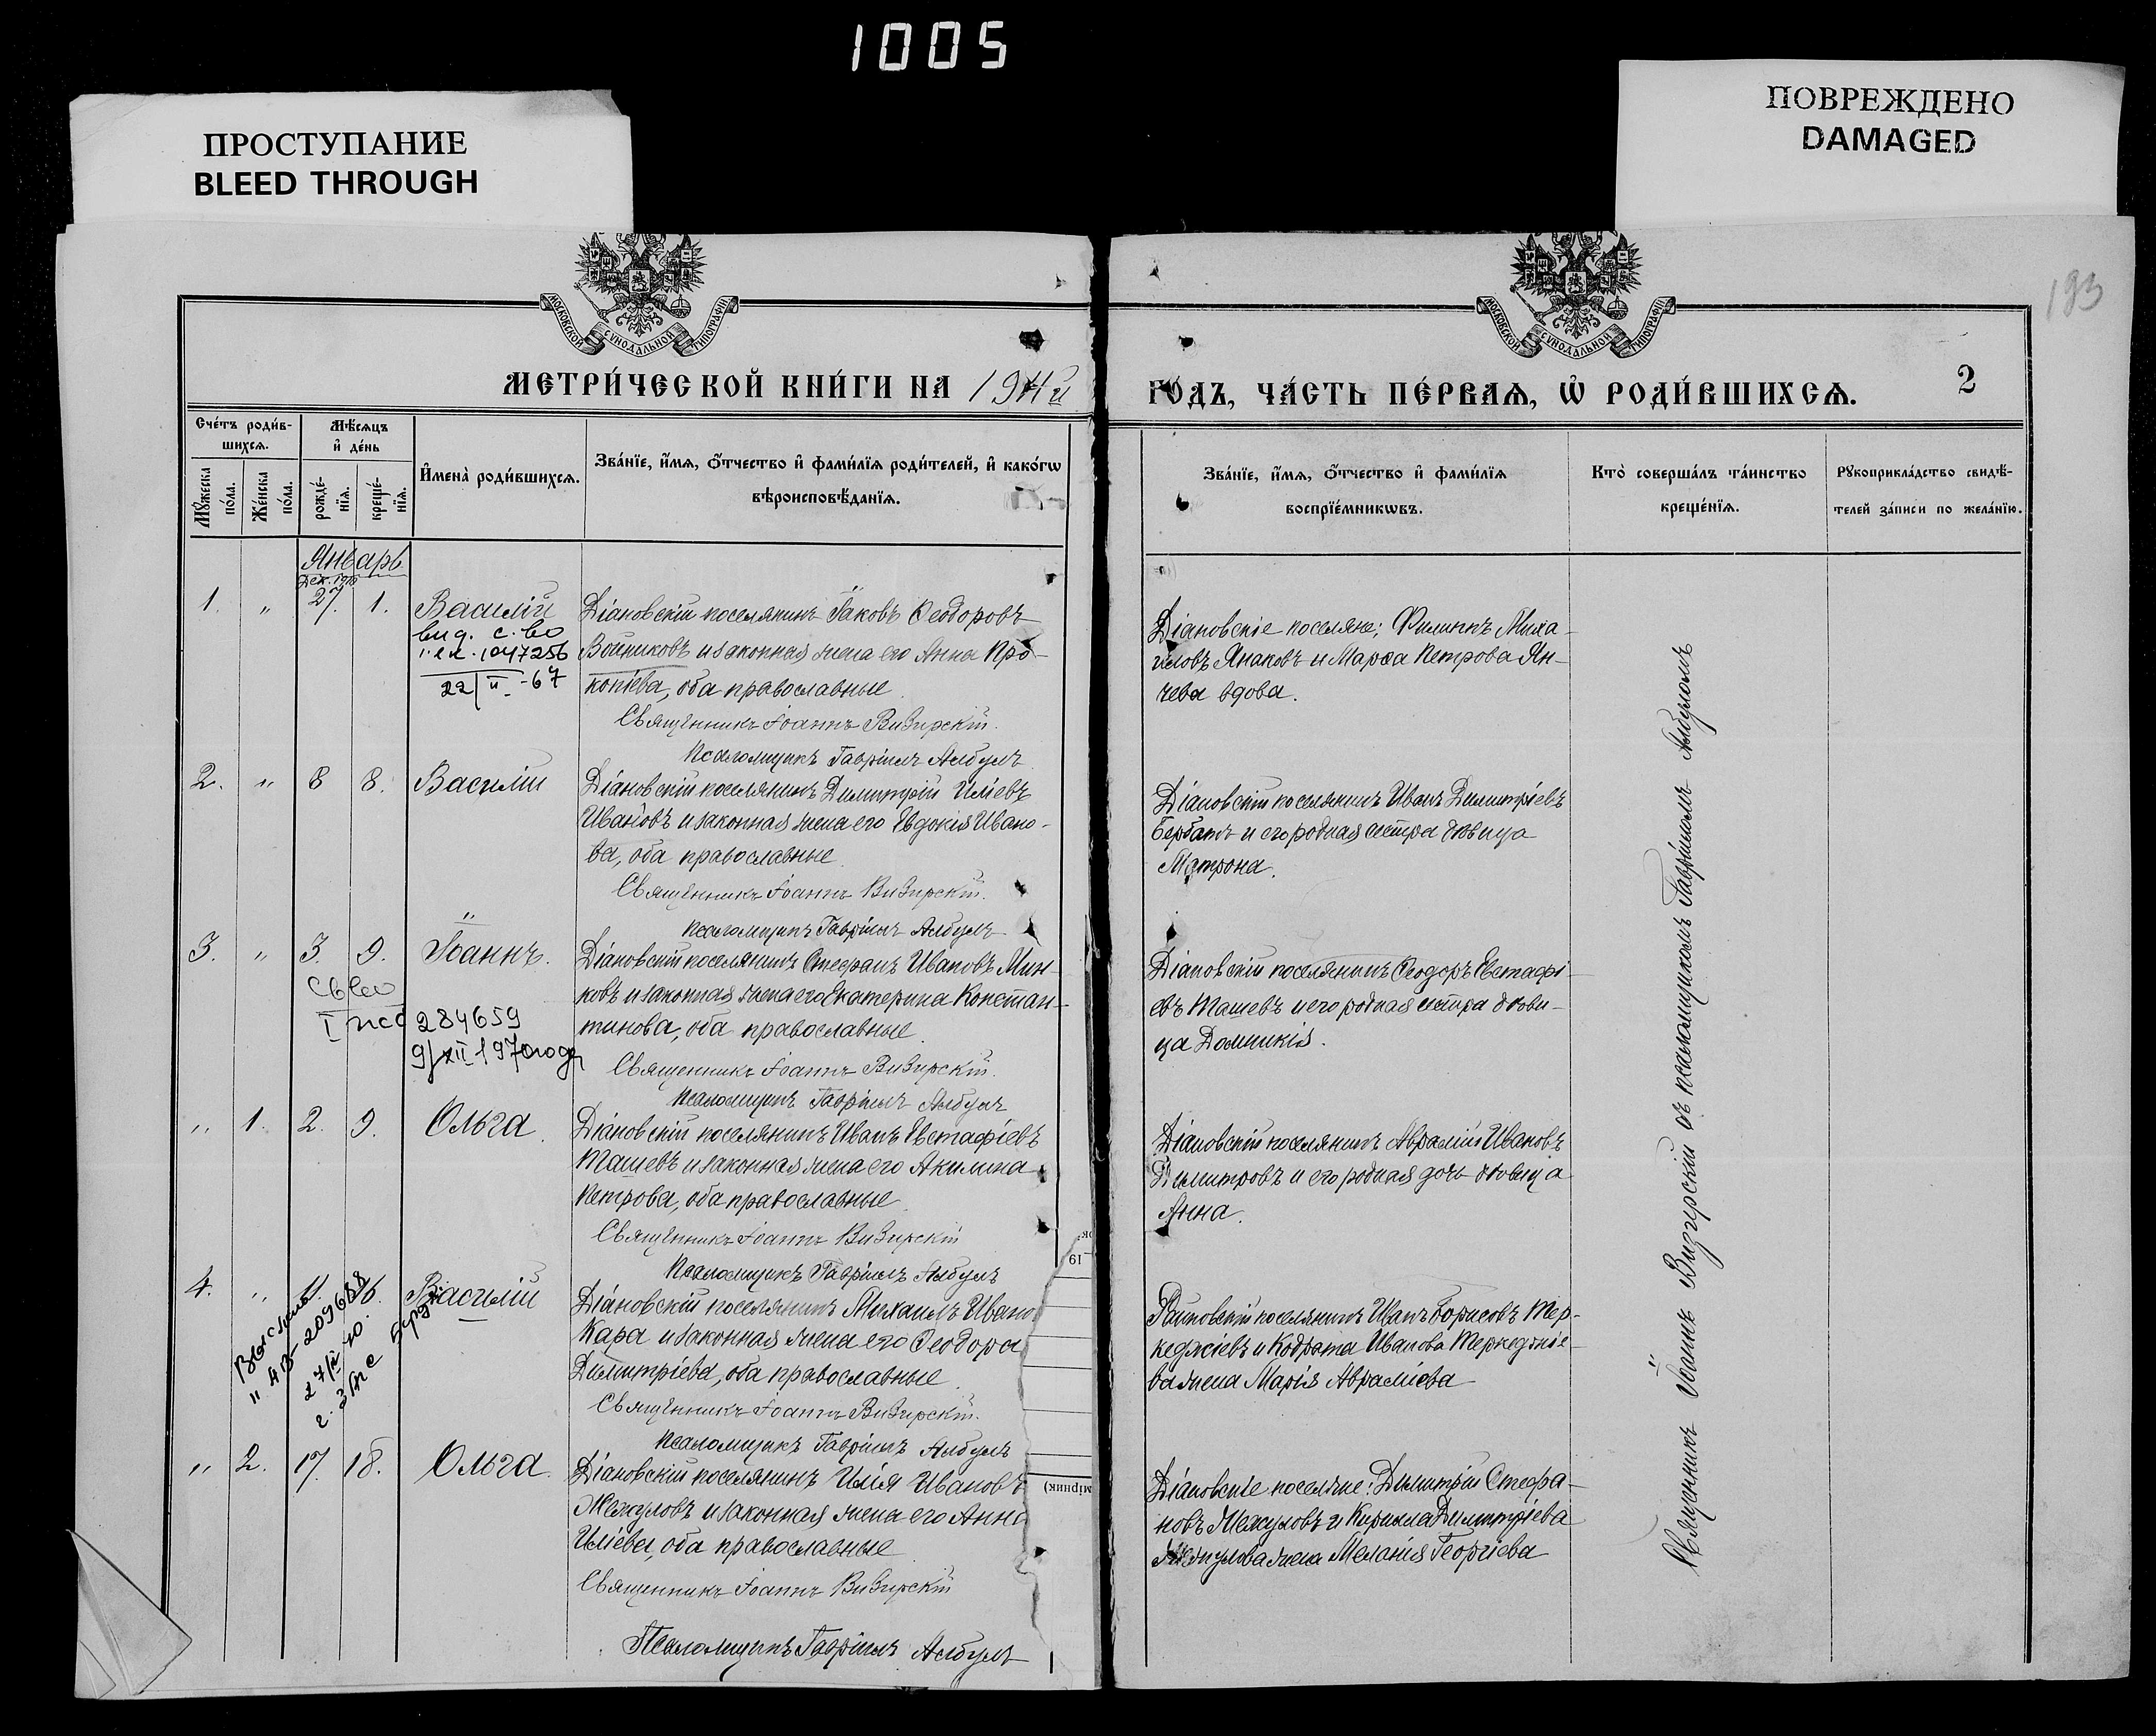 1005
ПРОСТУПАНИЕ
BLEED THROUGH
ПОВРЕЖДЕНО
DAMAGED
193
МОСКОВСКОЙ СѴНОДАЛЬНОЙ ТИПОГРАФІИ
МОСКОВСКОЙ СѴНОДАЛЬНОЙ ТИПОГРАФІИ
МЕТРИ́ЧЕСКОЙ КНИ́ГИ НА 1911й
ГО́ДЪ, ЧА́СТЬ ПЕ́РВАѦ, Ѡ҆ РОДИ́ВШИХСѦ.
2
Сче́тъ роди́в-
шихсѧ.
Мꙋжеска по́ла.
Же́нска по́ла.
Мѣ́сѧцъ
и҆ де́нь
рожде́-
нїѧ.
креще́-
нїѧ.
И҆мена̀ роди́вшихсѧ.
Зва́нїе, и҆́мѧ, ѻ҆́тчество и҆ фами́лїѧ роди́телей, и҆ како́гѡ
вѣроисповѣ́данїѧ.
Зва́нїе, и҆́мѧ, ѻ҆́тчество и҆ фами́лїѧ
воспрїе́мникѡвъ.
Кто̀ соверша́лъ та́инство
креще́нїѧ.
Рꙋкоприкла́дство свидѣ́-
телей за́писи по жела́нїю.
Январь
Дек. 1910
1. " 27. 1. Василій
вид. с. во
1047256
22/II-67
Діановскій поселянинъ Іаковъ Ѳеодоровъ
Войниковъ и законная жена его Анна Про-
копіева, оба православные.
Священникъ Іоаннъ Визирскій.
Псаломщикъ Гавріилъ Албулъ
Діановскіе поселяне: Филиппъ Миха-
иловъ Янаковъ и Марѳа Петрова Ян-
чева вдова.
2. " 8 8. Василій
Діановскій поселянинъ Димитрій Иліевъ
Ивановъ и законная жена его Евдокія Ивано-
ва, оба православные.
Священникъ Іоаннъ Визирскій.
Псаломщикъ Гавріилъ Албулъ
Діановскій поселянинъ Иванъ Димитріевъ
Бербатъ и его родная сестра дѣвица
Матрона.
3. " 3. 9. Іоаннъ.
Св во
284659
9/XII 1970 года
Діановскій поселянинъ Стефанъ Ивановъ Мин-
ковъ и законная жена его Екатерина Констан-
тинова, оба православные.
Священникъ Іоаннъ Визирскій.
Псаломщикъ Гавріилъ Албулъ
Діановскій поселянинъ Ѳеодоръ Евстафі-
евъ Ташевъ и его родная сестра дѣви-
ца Домникія.
" 1. 2. 9. Ольга.
Діановскій поселянинъ Иванъ Евстафіевъ
Ташевъ и законная жена его Акилина
Петрова, оба православные.
Священникъ Іоаннъ Визирскій
Псаломщикъ Гавріилъ Албулъ
Діановскій поселянинъ Авраамій Ивановъ
Димитровъ и его родная дочь дѣвица
Анна.
4. " Василій
209688
Діановскій поселянинъ Михаилъ Ивано
Кара и законная жена его Ѳеодора
Димитріева, оба православные.
Священникъ Іоаннъ Визирскій.
Псаломщикъ Гавріилъ Албулъ
поселянинъ Иванъ Борисовъ Тер-
Иванова
ва жена Марія Авраміева
" 2. 17. 18. Ольга.
Діановскій поселянинъ Илія Ивановъ
Межуловъ и законная жена его Анна
Иліева, оба православные.
Священникъ Іоаннъ Визирскій
Псаломщикъ Гавріилъ Албулъ
Діановскіе поселяне: Димитрій Стефа-
новъ Межуловъ и Кирилла Димитріева
Межулова жена Меланія Георгіева
Священникъ Іоаннъ Визирскій съ псаломщикомъ Гавріиломъ Албуломъ